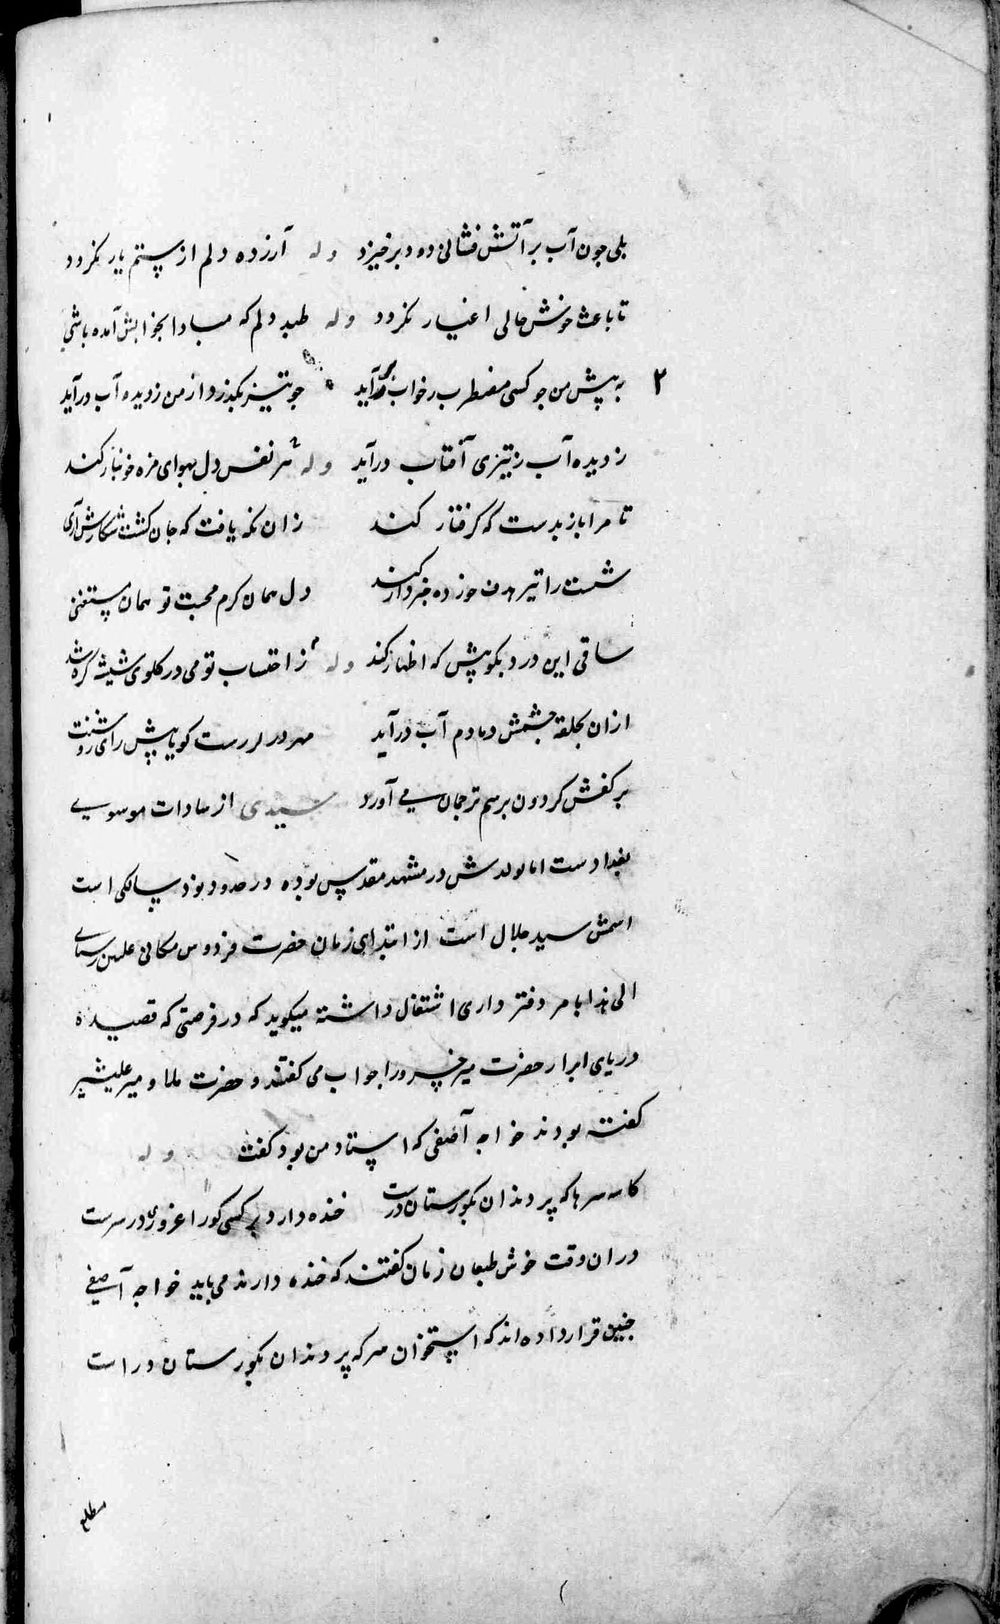 بلی چون آب بر آتش فشانی دود برخیزد وله آزرده دلم از ستم یار نگردد
تا باعث خوش حالی اغیار نگردد وله طپد دلم که مبادا بخوابش آمده باشی
۲ به پیش من چو کسی مضطرب ز خواب درآید چو تیز بگذرد از من ز دیده آب درآید
ز دیده آب ز تیزی آفتاب درآید وله هر نفس دل بهوای مژه خونبار کند
تا مرا باز بدست که گرفتار کند زان نگه یافت که جان گشت شکارش آری
شست را تیر هدف خورده خبردار کند دل همان گرم محبت تو همان مستغنی
ساقی این درد بگو پیش که اظهار کند وله ز احتساب تو می در گلوی شیشه گره شد
ازان بحلقه چشمش دمادم آب درآید
بر کفش گردون برسم ترجمان می آورد سیدی از سادات موسوی
بغدادست اما تولدش در مشهد مقدس بوده در حدود نود سالگی است
اسمش سید جلال است از ابتدای زمان حضرت فردوس مکانی علیین
الی هذا بامر دفترداری اشتغال داشته میگوید که در فرصتی که قصیده
دریای ابرار حضرت میرخسرو را جواب می گفتند و حضرت ملا و میر علیشیر
گفته بودند خواجه آصفی که استاد من بود گفت وله
کاسه سرها که پر دندان بگورستان درست خنده دارد بر کسی کورا غروری در سرست
دران وقت خوش طبعان زمان گفتند که خنده دارند می باید خواجه آصفی
چنین قرار داده اند که استخوان سر که پر دندان بگورستان در است
مطلع